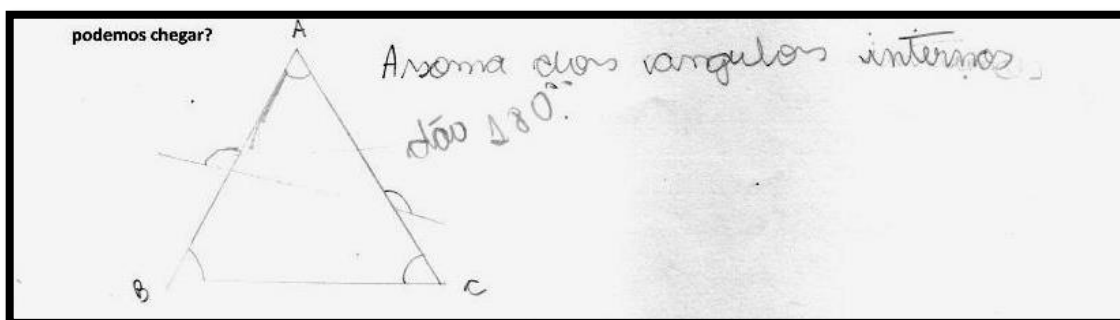 podemos chegar?
A
A soma dos angulos internos
dão 180°.
B
C